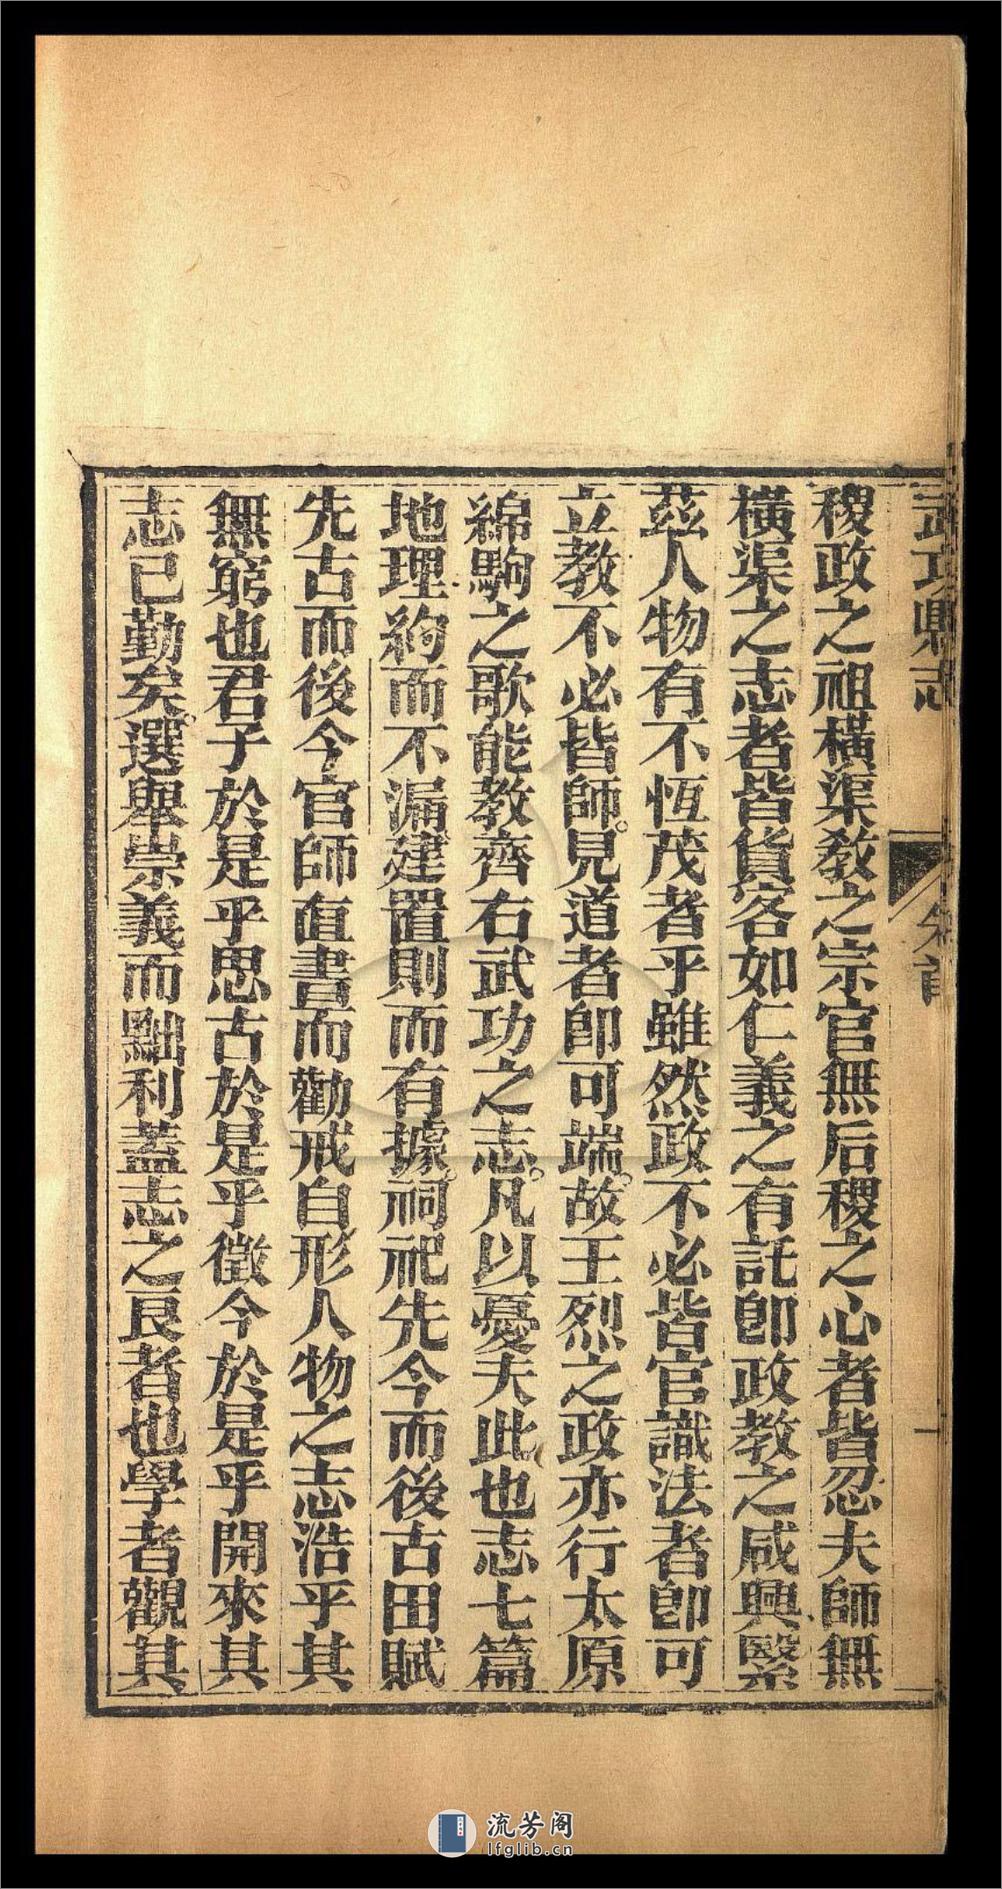 武功縣志
卷首
一
稷政之祖橫渠敎之宗官無后稷之心者皆忍夫師無
橫渠之志者皆貨客如仁義之有託卽政教之咸興繄
茲人物有不恆茂者乎雖然政不必皆官識法者卽可
立教不必皆師。見道者卽可端。故王烈之政亦行太原
綿駒之歌能教齊右武功之志。凡以憂夫此也志七篇
地理約而不漏建置則而有據。祠祀先今而後古田賦
先古而後今官師直書而勸戒自形人物之志浩乎其
無窮也君子於是乎思古於是乎徵今於是乎開來其
志已勤矣。選舉崇義而黜利蓋志之良者也學者觀其
流芳阁
lfglib.cn